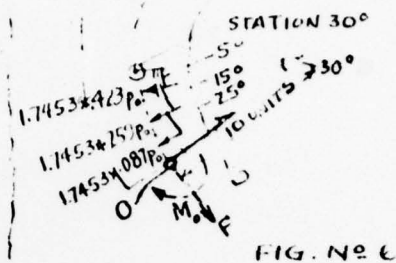 STATION 30°
5°
15°
25°
30°
1.7453×.423p₀
1.7453×.259p₀
1.7453×.087p₀
10 UNITS
O
M₀
F
FIG. Nº 6